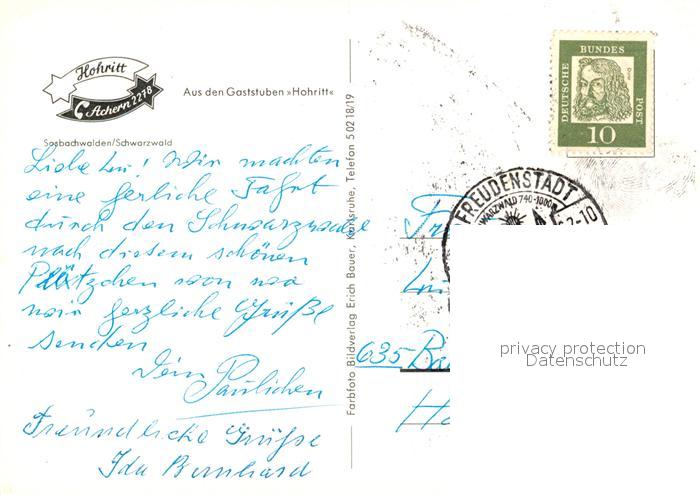 Hohritt
Achern 2278
Aus den Gaststuben »Hohritt«
Sasbachwalden/Schwarzwald
Liebe Lui! Wir machten
eine herliche Fahrt
durch den Schwarzwald
nach diesem schönen
Plätzchen von wo
wir herzliche Grüße
senden
Dein Paulichen
Freundliche Grüße
Ida Bernhard
Farbfoto Bildverlag Erich Bauer, Karlsruhe, Telefon 5 02 18/19
DEUTSCHE BUNDES POST
10
FREUDENSTADT
SCHWARZWALD 740-1000m
Fr
635 Ba
privacy protection
Datenschutz